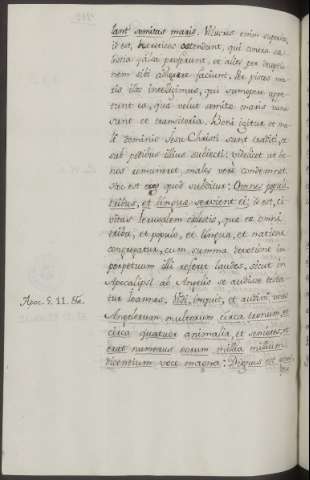 lant semitas maris. Volucres enim superbia,
id est, hæreticos ostendunt, qui contra cæ-
lestia falsa proferunt, et alios per deceptio-
nem sibi adhærere faciunt. Per pisces ma-
ris illos intelligimus, qui summopere appe-
tunt ea, quæ velut semitæ maris vana
sunt et transitoria. Boni igitur et ma-
li dominio Jesu Christi sunt traditi, et
sub pedibus illius subjecti: videlicet ut bo-
nos remuneret, malos vero condemnet.
Hoc est quod subditur: Omnes populi,
tribus, et linguæ servient ei; id est, ci-
vitas Jerusalem cælestis, quæ ex omni
tribu, et populo, et lingua, et natione
congregatur, cum summa devotione in
perpetuum illi referat laudes, sicut in
Apocalipsi ab Angelis se audisse testa-
Apoc. 5. 11. &c.
tur Joannes. Vidi, inquit, et audivi voce
Angelorum multorum circa tronum, et
circa quatuor animalia, et seniores, et
erat numerus eorum millia millium
dicentium voce magna: Dignus est